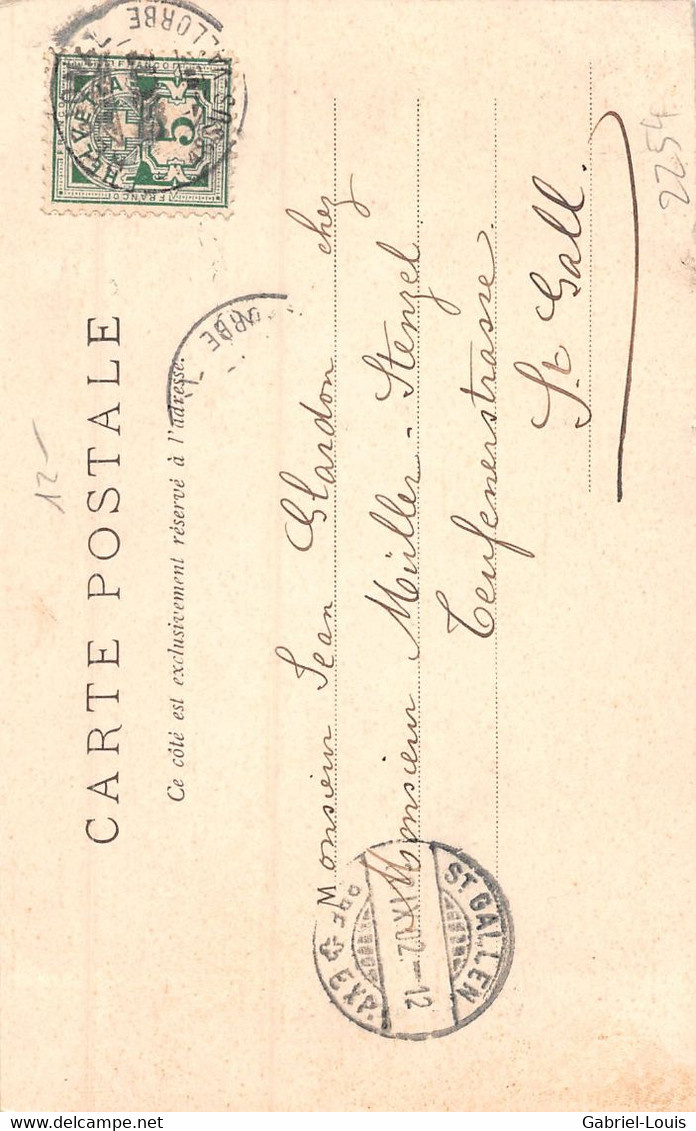 CARTE POSTALE
Ce côté est exclusivement réservé à l'adresse.
HELVETIA
5
FRANCO
FRANCO
LLORBE
ORBE
Monsieur Jean Glardon chez
Monsieur Müller-Stenzel
Teufenerstrasse.
St Gall.
ST GALLEN
IX.02-12
EXP.
12-
2254
delcampe.net
Gabriel-Louis